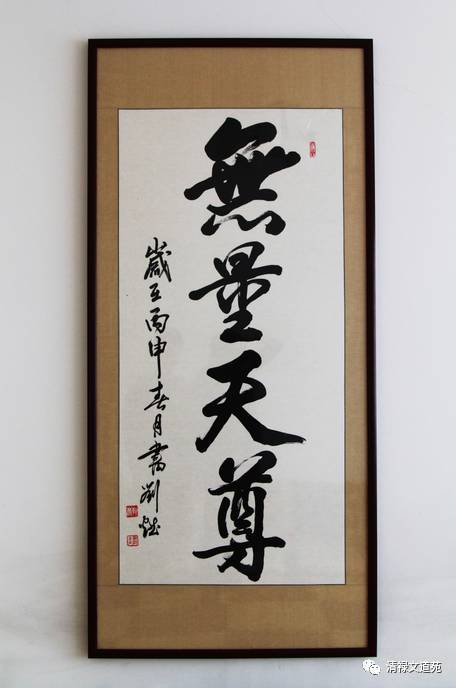 無量天尊
歲在丙申春月書劉
清禄文道苑